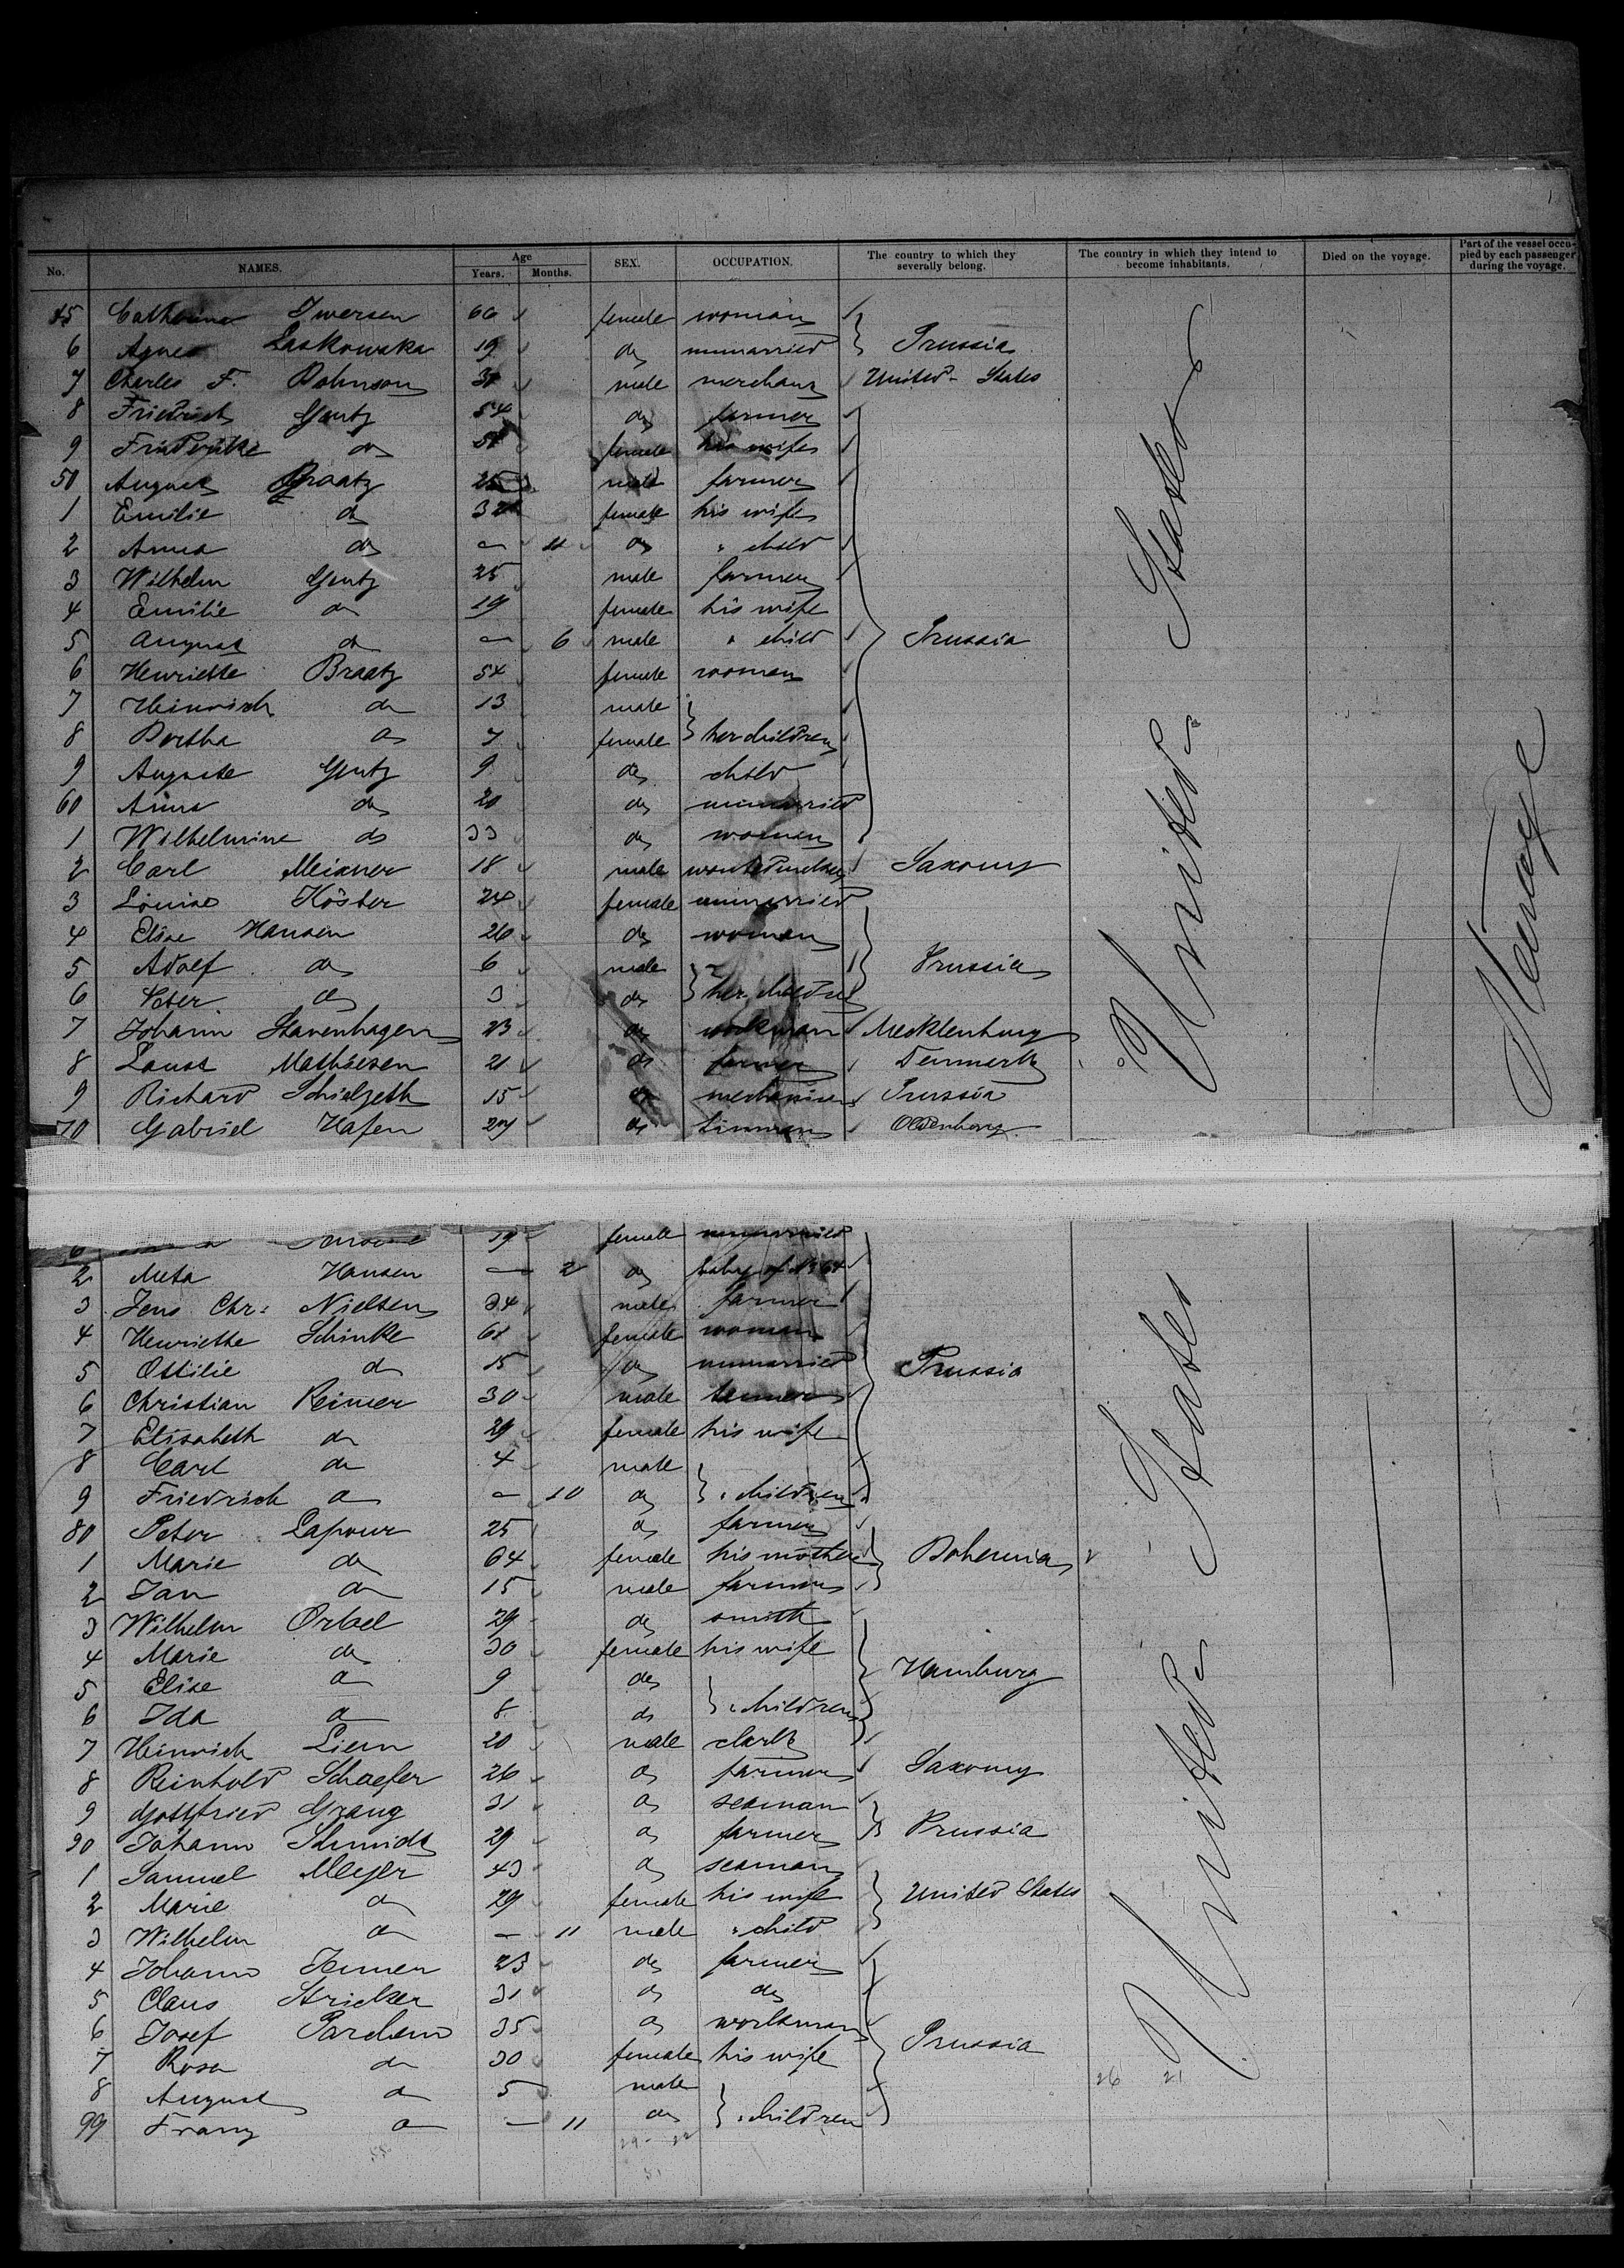 No. NAMES. Age Years. Months. SEX. OCCUPATION. The country to which they severally belong. The country in which they intend to become inhabitants. Died on the voyage. Part of the vessel occupied by each passenger during the voyage.
45 Catharina Iwersen 66 female woman
6 Agnes Laskowska 19 do unmarried Prussia
7 Charles F. male merchant United States
8 Friedrich Gentz 54 do farmer
9 Friederike do female his wife
50 August Braatz 25 male farmer
1 Emilie do 32 female his wife
2 Anna do — 11 do " child
3 Wilhelm Gentz 25 male farmer
4 Emilie do 19 female his wife
5 August do — 6 male " child Prussia
6 Henriette Braatz 54 female woman
7 Heinrich do 13 male
8 Bertha do 7 female her children
9 Auguste Gentz 9 do child
60 Anna do 20 do unmarried
1 Wilhelmine do 33 do woman
2 Carl Meixner 18 male Saxony
3 Louise Köster 24 female unmarried
4 Elise Hansen 26 do woman
5 Adolf do 6 male Prussia
6 Peter do 3 do her children
7 Johann Stavenhagen 23 do workman Mecklenburg
8 Laust Mathiesen 21 do farmer Denmark
9 Richard Schielzeth 15 do mechanician Prussia
70 Gabriel Hafen 27 do tinman Oldenburg
United States
Steerage
19 female unmarried
2 Meta Hansen — 2 do baby of No 64
3 Jens Chr: Nielsen 34 male farmer
4 Henriette Schinke 61 female woman
5 Ottilie do 15 do unmarried Prussia
6 Christian Reimer 30 male
7 Elisabeth do 29 female his wife
8 Carl do 4 male
9 Friedrich do — 10 do " children
80 Peter Lapour 25 do farmer
1 Marie do 64 female his mother Bohemia
2 Jan do 15 male farmer
3 Wilhelm Ortael 29 do smith
4 Marie do 30 female his wife
5 Elise do 9 do Hamburg
6 Ida do 8 do " children
7 Heinrich Liem 20 male clark
8 Reinhold Schaefer 26 do farmer Saxony
9 Gottfried Grang 31 do seaman
90 Johann Schmidt 29 do farmer Prussia
1 Samuel Meyer 43 do seaman
2 Marie do 29 female his wife United States
3 Wilhelm do — 11 male " child
4 Johann 23 do farmer
5 Claus Stricker 31 do do
6 Josef 35 do workman
7 Rosa do 30 female his wife Prussia
8 August do 5 male
99 Franz do — 11 do " children
United States
26 21